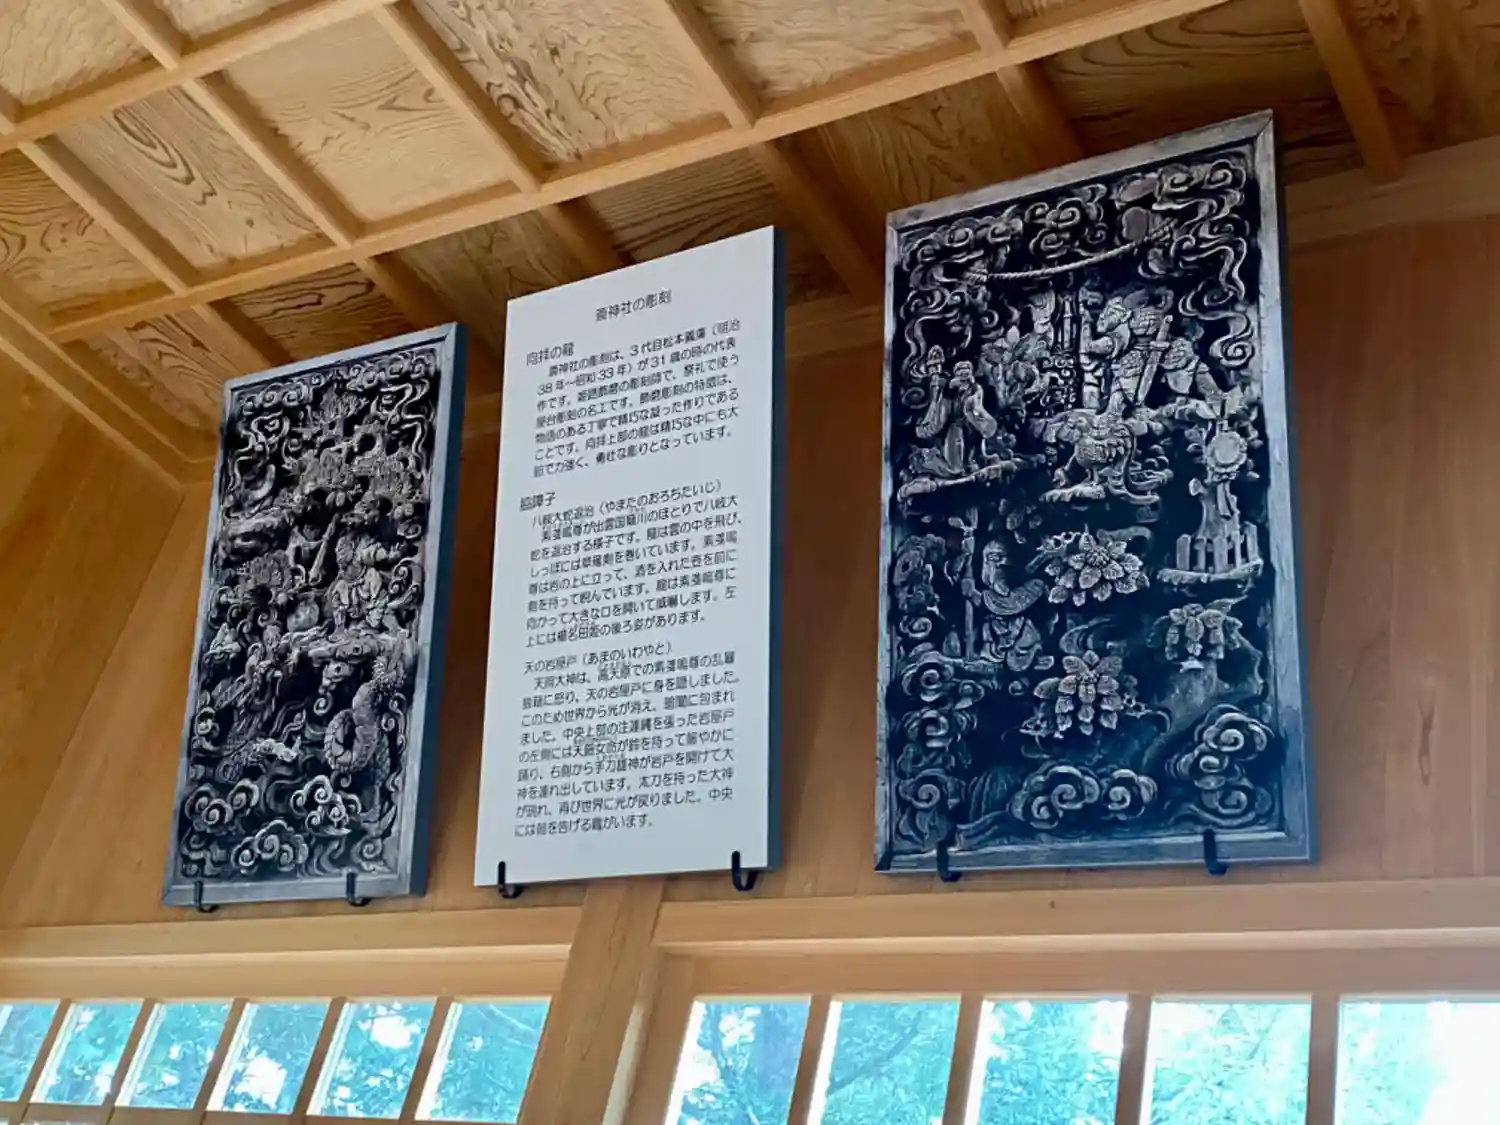 神社の彫刻
向拝の龍
神社の彫刻は、3代目松本義廣（明治
38年～昭和33年）が31歳の時の代表
作です。姫路飾磨の彫刻師で、祭礼で使う
屋台彫刻の名工です。飾磨彫刻の特徴は、
物語のある丁寧で精巧な凝った作りである
ことです。向拝上部の龍は精巧な中にも大
胆で力強く、勇壮な彫りとなっています。
脇障子
八岐大蛇退治（やまたのおろちたいじ）
素戔嗚尊が出雲国簸川のほとりで八岐大
蛇を退治する様子です。龍は雲の中を飛び、
しっぽには草薙剣を巻いています。素戔嗚
尊は岩の上に立って、酒を入れた壺を前に
剣を持って睨んでいます。龍は素戔嗚尊に
向かって大きな口を開いて威嚇します。左
上には櫛名田姫の後ろ姿があります。
天の岩屋戸（あまのいわやと）
天照大神は、高天原での素戔嗚尊の乱暴
狼藉に怒り、天の岩屋戸に身を隠しました。
このため世界から光が消え、暗闇に包まれ
ました。中央上部の注連縄を張った岩屋戸
の左側には天鈿女命が鈴を持って賑やかに
踊り、右側から手力雄神が岩戸を開けて大
神を連れ出しています。太刀を持った大神
が現れ、再び世界に光が戻りました。中央
には朝を告げる鶏がいます。